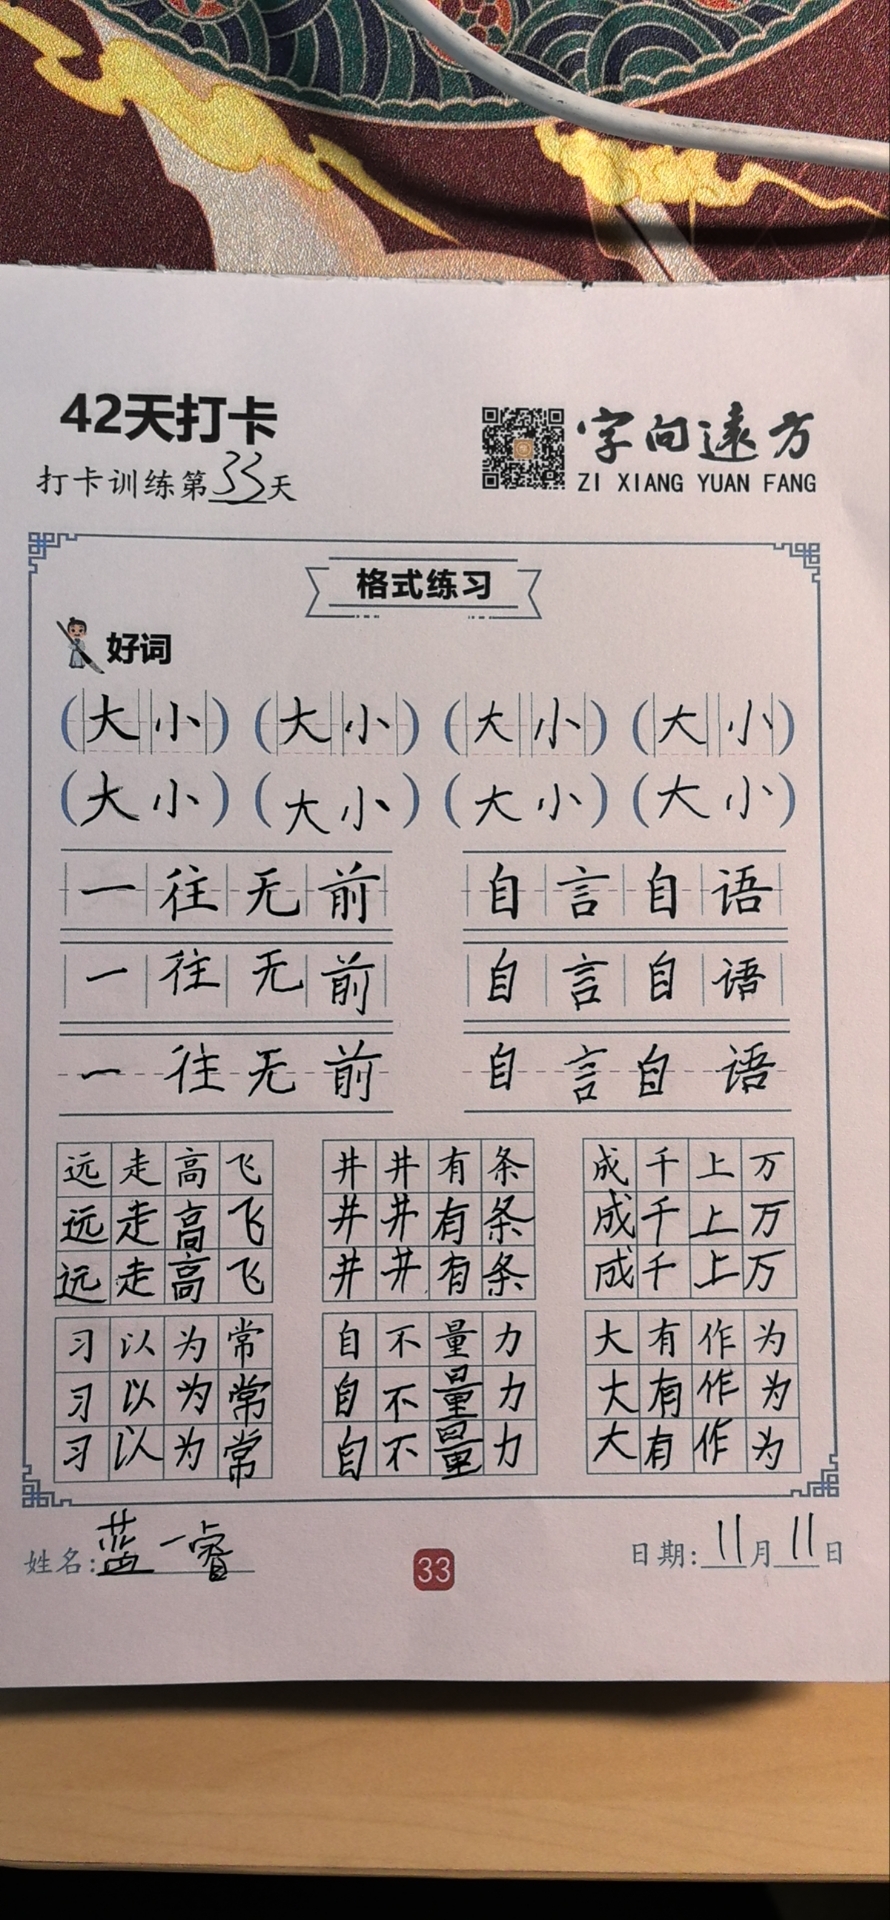 42天打卡
字向遠方
打卡训练第33天
ZI XIANG YUAN FANG
格式练习
好词
(大小) (大小) (大小) (大小)
(大小) (大小) (大小) (大小)
一往无前 自言自语
一往无前 自言自语
一往无前 自言自语
远走高飞 井井有条 成千上万
远走高飞 井井有条 成千上万
远走高飞 井井有条 成千上万
习以为常 自不量力 大有作为
习以为常 自不量力 大有作为
习以为常 自不量力 大有作为
姓名:蓝一睿 33 日期:11月11日